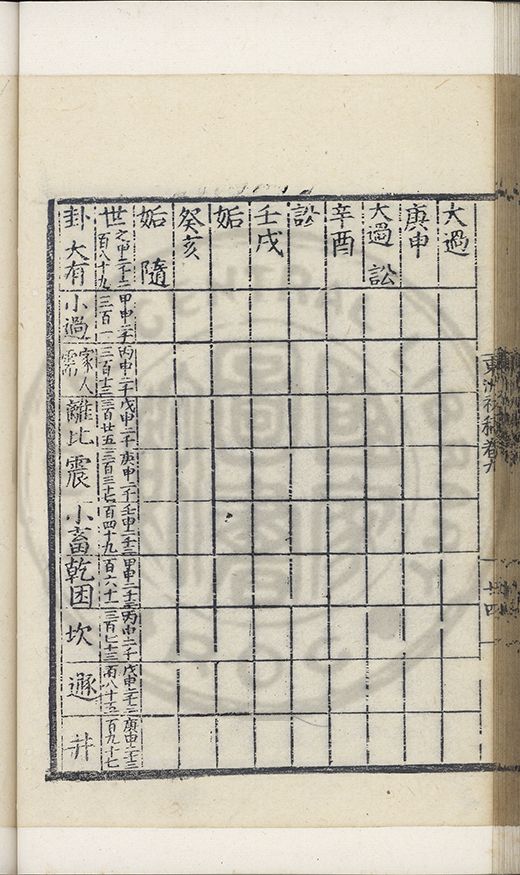 東洲初稿卷九
大過
庚申
大過 訟
辛酉
訟
壬戌
姤
癸亥
姤 隨
世 甲申二千三百一 丙申二千三百十三 戊申二千三百廿五 庚申二千三百三十七 壬申二千三百四十九 甲申二千三百六十一 丙申二千三百七十三 戊申二千三百八十五 庚申二千三百九十七
卦 大有 小過 家人 需 離 比 震 小畜 乾 困 坎 遯 井